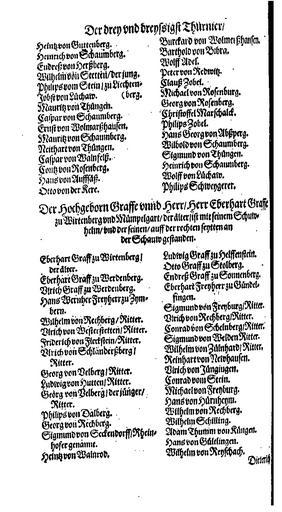 Der drey vnd dreyssigst Thurnier/
Heintz von Guttenberg.
Heinrich von Schaumberg.
Endreß von Herßberg.
Wilhelm von Stettin/ der jung.
Philips vom Stein zu Liechten-
Jobst von Lüchaw. (berg.
Mauritz von Thüngen.
Caspar von Schaumberg.
Ernst von Wolmarßhausen.
Mauritz von Schaumberg.
Neithart von Thüngen.
Caspar von Walnfelß.
Contz von Rosenberg.
Hans von Auffsäß.
Otto von der Kere.
Burckard von Wolmerßhausen.
Barthold von Bibra.
Wolff Adel.
Peter von Redwitz.
Clauß Zobel.
Michael von Rosenburg.
Georg von Rosenberg.
Christoffel Marschalck.
Philips Zobel.
Hans Georg von Abßperg.
Wilbold von Schaumberg.
Sigmund von Thüngen.
Heinrich von Schaumberg.
Wolff von Lüchaw.
Philips Schweygerer.
Der Hochgeborn Graffe vnnd Herr/ Herr Eberhart Graffe
zu Wirtenberg vnd Mümpelgart/ der älter/ ist mit seinem Schuw-
helm/ vnd der seinen/ auff der rechten seytten an
der Schauw gestanden.
Eberhart Graff zu Wirtenberg/
der älter.
Eberhart Graff zu Werdenberg.
Vlrich Graff zu Werdenberg.
Hans Wernher Freyherr zu Zym-
bern.
Wilhelm von Rechberg/ Ritter.
Vlrich von Westerstetten/ Ritter.
Friderich von Fleckstein/ Ritter.
Vlrich von Schländersberg/
Ritter.
Georg von Velberg/ Ritter.
Ludwig von Hutten/ Ritter.
Georg von Velberg/ der jünger/
Ritter.
Philips von Dalberg.
Georg von Rechberg.
Sigmund von Seckendorff/ Rhein-
hofer genannt.
Heintz von Walnrod.
Ludwig Graff zu Helffenstein.
Otto Graff zu Stolberg.
Endreß Graff zu Sonnenberg.
Eberhart Freyherr zu Gündel-
fingen.
Sigmund von Freyburg/ Ritter.
Vlrich von Rechberg/ Ritter.
Conrad von Schelnberg/ Ritter.
Sigmund von Welden Ritter.
Wilhelm von Zülnhard/ Ritter.
Reinhart von Newhausen.
Vlrich von Jüngingen.
Conrad vom Stein.
Michael von Freyburg.
Hans von Hürnheym.
Wilhelm von Rechberg.
Wilhelm Schilling.
Adam Thumm von Küngen.
Hans von Gültlingen.
Wilhelm von Reyschach.
Dieterich